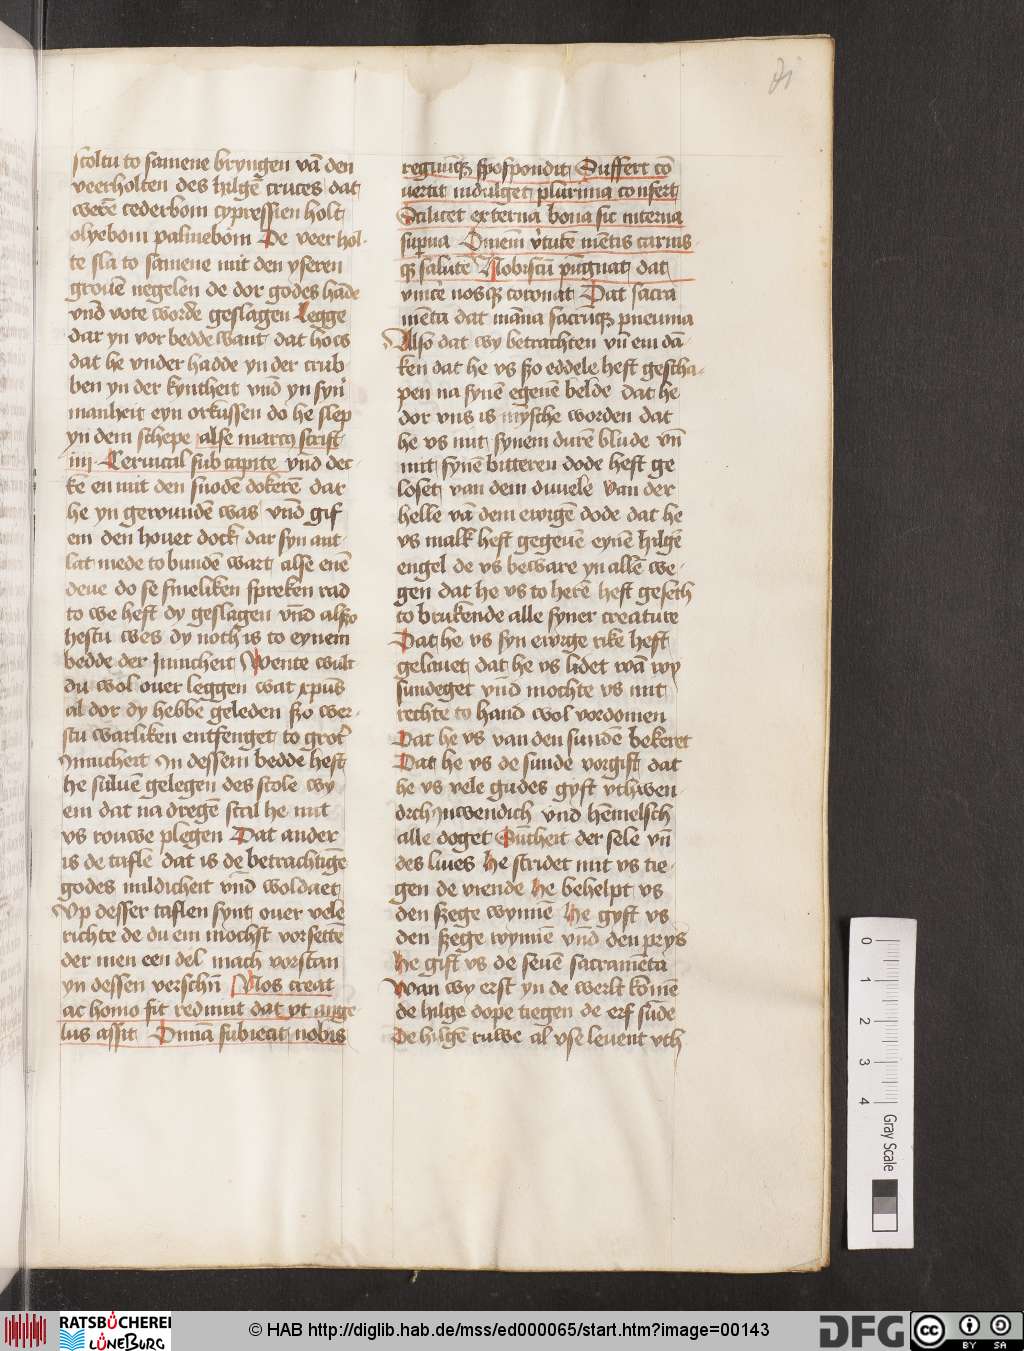 scoltu to samene bryngen vā den
veerholten des hilgē cruces dat
werē cederbom cypressien holt
olyebom palmebom De veer hol-
te sla to samene mit den yseren
grouē negelen de dor godes hāde
vnd vote wordē geslagen Legge
dar yn vor bedde want dat hows
dat he vnder hadde yn der crub
ben yn der kyntheit vnd yn syn'
manheit eyn orkussen do he slep
yn dem schepe alse marcus scrift
iiij Ceruical sub capite vnd dec-
ke en mit den snodē dokerē dar
he yn gewundē was vnd gif
em den houet dock dar syn ant-
lat mede to bundē wart alse enē
deue do se smeliken spreken rad
to we heft dy geslagen vnd alszo
hestu wes dy noch is to eynem
bedde der Jnnicheit Wente wult
du wol ouer leggen wat xpūs
al dor dy hebbe geleden szo wer-
stu warliken entfenget to grot'
Jnnicheit Jn dessem bedde heft
he suluē gelegen des scole wy
em dat na dregē scal he mit
vs rouwe plegen Dat ander
is de tafle dat is de betrachtigē
godes mildicheit vnd woldaet
Vp desser taflen synt ouer vele
richte de du em mochst vorsettē
der men een del mach vorstan
yn dessen verschn̄ Nos creat
ac homo fit redimit dat vt ange-
lus assit Omīa subiecit nobis
regnūqꝫ spospondit Suffert cō
uertit indulget plurima confert
Scilicet externa bona sic interna
sup̄na Omnem v'tutē mētis carnis-
qꝫ salutē Nobiscū pugnat dat
vincē nosqꝫ coronat Dat sacra
mēta dat māna sacrūqꝫ pneuma
Also dat wy betrachten vn̄ em dā-
ken dat he vs szo eddele heft gescha-
pen na synē egenē belde dat he
dor vns is mysche worden dat
he vs mit synem durē blude vn̄
mit synē bitteren dode heft ge
loset van dem duuele van der
helle vā dem ewigē dode dat he
vs malk heft gegeuē eynē hilgē
engel de vs beware yn allē we-
gen dat he vs to herē heft geseth
to brukende alle syner creature
Dat he vs syn ewige rike heft
gelauet dat he vs lidet wā wy
sundeget vnd mochte vs mit
rechte to hand wol vordomen
Dat he vs van den sundē bekeret
Dat he vs de sunde vorgift dat
he vs vele gudes gyft vthwen-
dich Jnwendich vnd hēmelsch
alle doget Sūtheit der sele vn̄
des liues He stridet mit vs tie-
gen de viende He behelpt vs
den szege wynnē He gyft vs
den szege wynnē vnd den prys
He gift vs de seuē sacramēta
Wan wy erst yn de werlt komē
de hilge dope tiegen de erf sūde
De hilgē ruwe al vse leuent vth
© HAB http://diglib.hab.de/mss/ed000065/start.htm?image=00143
RATSBÜCHEREI
LÜNEBURG
DFG
cc
BY SA
0
1
2
3
4
Gray Scale